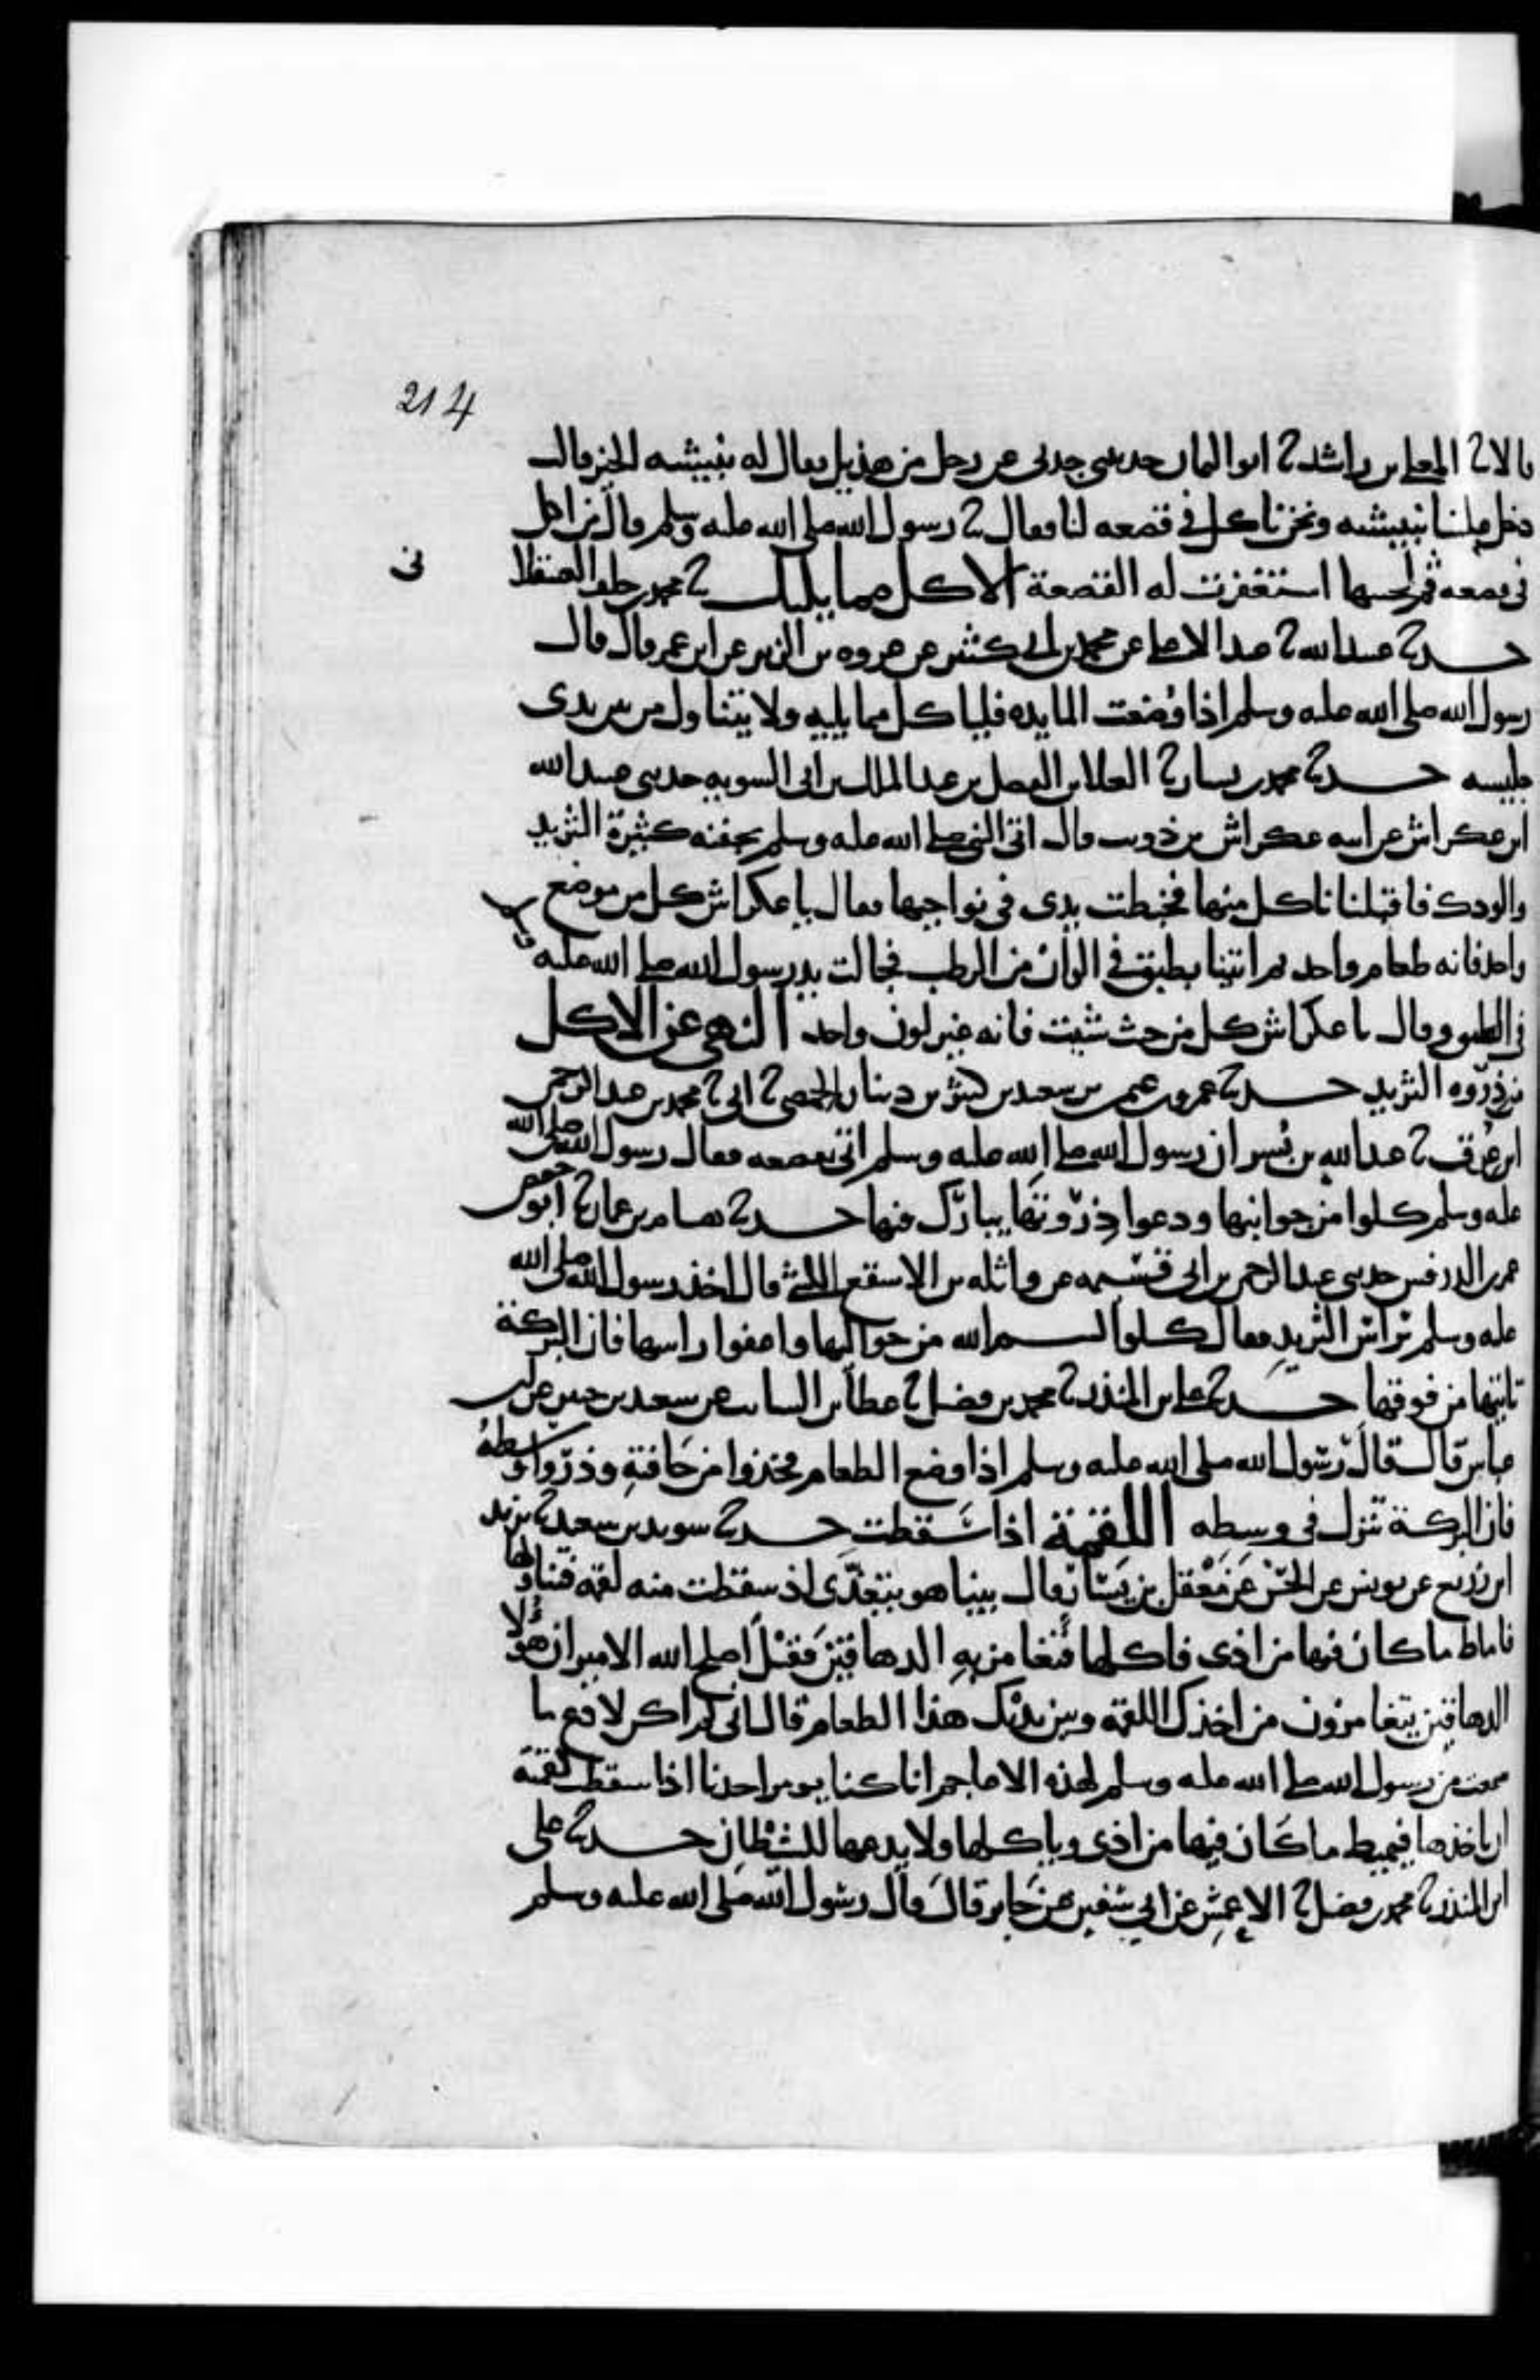 214
قالا ثنا المعلى بن راشد ثنا ابو اليمان حدثتني جدتي عن رجل من هذيل يقال له نبيشه الخير قال
دخل علينا نبيشه ونحن ناكل في قصعه لنا فقال ثنا رسول الله صلى الله عليه وسلم قال من اكل
في قصعه ثم لحسها استغفرت له القصعة الاكل مما يليك ثنا محمد بن خلف العسقلا
نى
حدثنا عبيد الله ثنا عبد الاعلى عن يحيى بن ابي كثير عن عروه بن الزبير عن ابن عمر قال قال
رسول الله صلى الله عليه وسلم اذا وُضعت المايده فلياكل مما يليه ولا يتناول من بين يدى
جليسه حدثنا محمد بن بشار ثنا العلا بن الفضل بن عبد الملك بن ابي السويه حدثني عبيد الله
ابن عكراش عن ابيه عكراش بن ذويب قال اتى النبي صلى الله عليه وسلم بجفنه كثيرة الثريد
والودك فاقبلنا ناكل منها فخبطت يدى في نواحيها فقال يا عكراش كل من موضع
واحد فانه طعام واحد ثم اتينا بطبق فى الوان من الرطب فجالت يد رسول الله صلى الله عليه
في الطبق وقال يا عكراش كل من حيث شيت فانه غير لون واحد النهى عن الاكل
من ذروه الثريد حدثنا عمرو بن عثمان بن سعيد بن كثير بن دينار الحمصي ثنا ابي ثنا محمد بن عبد الرحمن
ابن عرق ثنا عبد الله بن بُسر ان رسول الله صلى الله عليه وسلم اتى بقصعه فقال رسول الله صلى الله
عليه وسلم كلوا من جوانبها ودعوا ذروتها يبارك فيها حدثنا هشام بن عمار ثنا ابو حفص
عمر بن الدرفس حدثني عبد الرحمن بن ابي قسيمه عن واثله بن الاسقع الليثي قال اخذ رسول الله صلى الله
عليه وسلم براس الثريد فقال كلوا بسم الله من حواليها واعفوا راسها فان البركة
تاتيها من فوقها حدثنا علي بن المنذر ثنا محمد بن فضيل ثنا عطا بن السايب عن سعيد بن جبير عن ابن
عباس قال قال رسول الله صلى الله عليه وسلم اذا وضع الطعام فخذوا من حافته وذروا وسطهُ
فان البركة تنزل في وسطه اللقمة اذا سقطت حدثنا سويد بن سعيد ثنا يزيد
ابن زريع عن يونس عن الحسن عن مَعْقل بن يَسَار قال بينما هو يتغدّى اذ سقطت منه لقمه فتناولها
فاماط ما كان فيها من اذى فاكلها فتغامز به الدهاقين فقيل اصلح الله الامير ان هؤلا
الدهاقين يتغامزون من اخذك اللقمه وبين يديك هذا الطعام قال انى لم اكن لادع ما
سمعت من رسول الله صلى الله عليه وسلم لهذه الاعاجم انا كنا يومر احدنا اذا سقطت لقمته
ان ياخذها فيميط ما كان فيها من اذى وياكلها ولا يدعها للشيطان حدثنا على
ابن المنذر ثنا محمد بن فضيل ثنا الاعمش عن ابي سفين عن جابر قال قال رسول الله صلى الله عليه وسلم